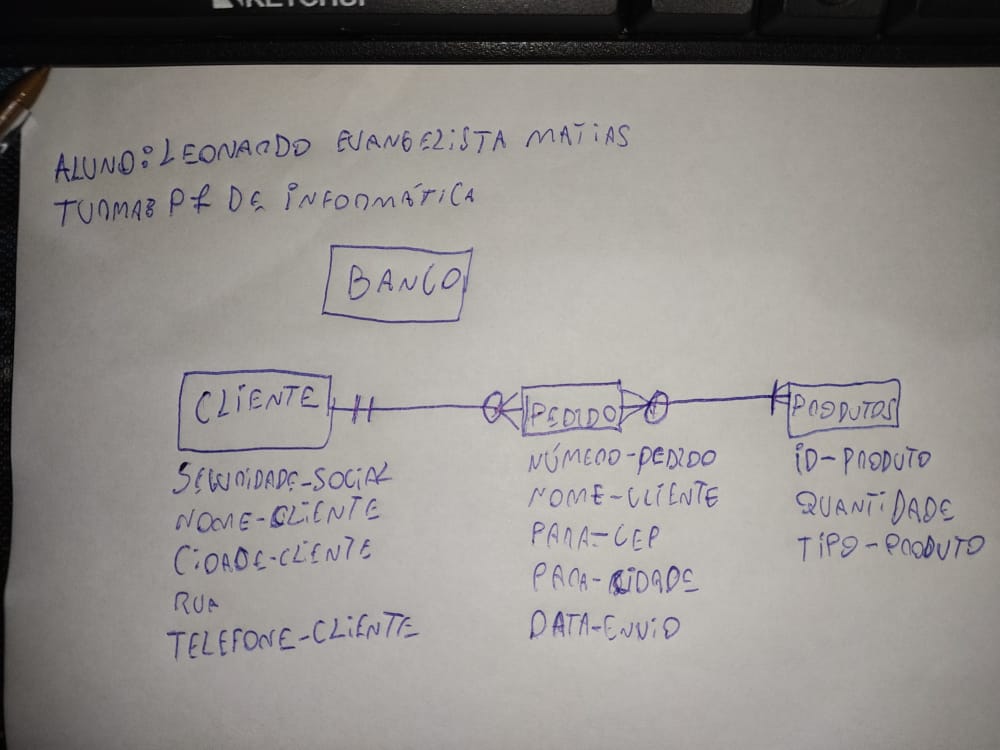 KETCHUP
ALUNO: LEONARDO EVANGELISTA MATIAS
TURMA: P1 DE INFORMÁTICA
BANCO
CLIENTE
SEGURIDADE-SOCIAL
NOME-CLIENTE
CIDADE-CLIENTE
RUA
TELEFONE-CLIENTE
PEDIDO
NÚMERO-PEDIDO
NOME-CLIENTE
PARA-CEP
PARA-CIDADE
DATA-ENVIO
PRODUTOS
ID-PRODUTO
QUANTIDADE
TIPO-PRODUTO